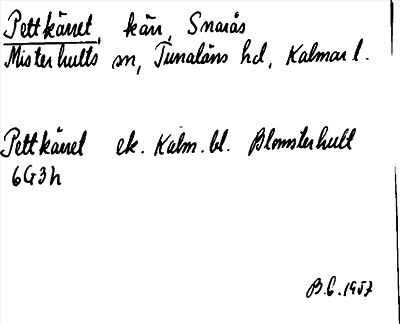 Pettkärret, kärr, Snarås
Misterhults sn, Tunaläns hd, Kalmar l.
Pettkärret ek. Kalm. bl. Blomsterhult
6G3h
B.G. 1957